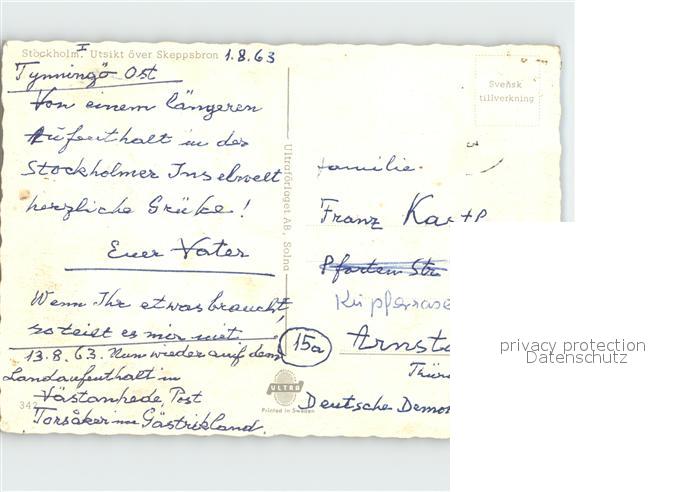 Stockholm. Utsikt över Skeppsbron 1.8.63
I
Tynningö Ost
Von einem längeren
Aufenthalt in der
Stockholmer Inselwelt
herzliche Grüße!
Euer Vater
Wenn Ihr etwas braucht,
so teilt es mir mit
13.8.63. Nun wieder auf dem
Landaufenthalt in
Västanhede, Post
Torsåker in Gästrikland.
342
Ultraförlaget AB, Solna
ULTRA
Printed in Sweden
Svensk
tillverkning
Familie
Franz
Pforten Str
15a Arnst
Thür
Deutsche Demo
privacy protection
Datenschutz